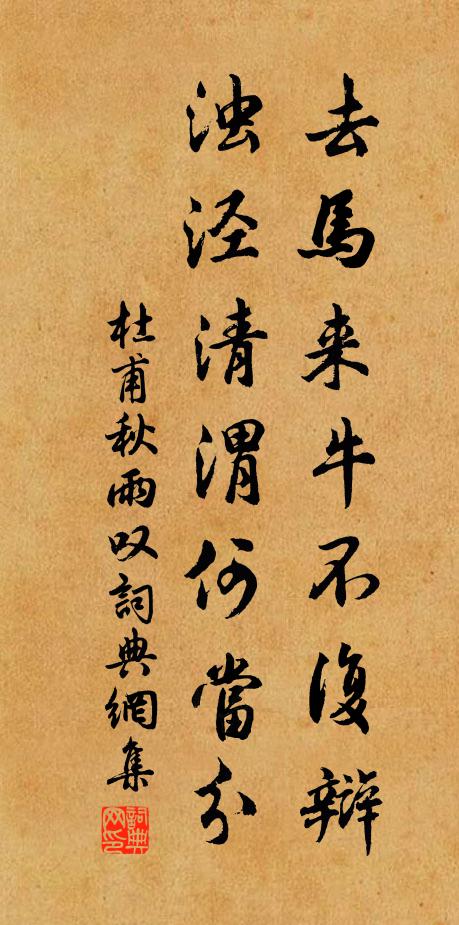 去馬来牛不復辯
浊泾清渭何當分
杜甫秋雨叹詞典網集
詞典网印